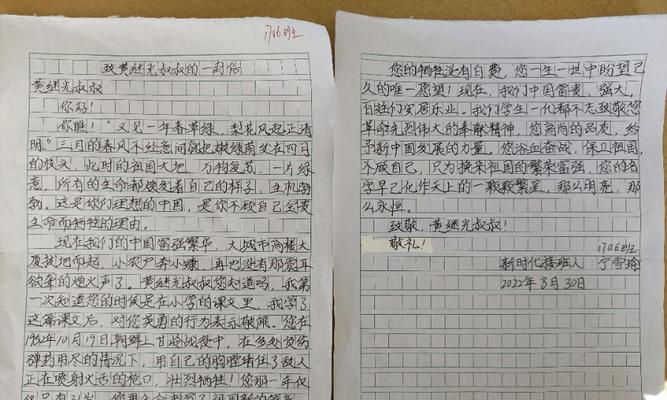 1706班
致黄继光叔叔的一封信
黄继光叔叔
你好！
你瞧！“又见一年春草绿，梨花风起正清
明。”三月的春风不经意间就把嫩绿萌发在四月
的枝丫，此时的祖国大地，万物复苏，一片绿
意，所有的生命都焕发着自己的样子，生机勃
勃。这是你们理想的中国，是你不顾自己宝贵
生命而牺牲的理由。
现在我们的中国富强繁华，大城市高楼大
厦拔地而起，小农户奔小康，再也没有那震耳
欲聋的炮火声了。黄继光叔叔您知道吗，我第
一次知道您的时候是在小学的课文里，我学了
这篇课文后，对您英勇的行为表示敬佩。您在
1952年10月19日朝鲜上甘岭战役中，在多处负伤
弹药用尽的情况下，用自己的胸膛堵住了敌人
正在喷射火舌的枪口，壮烈牺牲！您那一年仅
您的牺牲没有白费，您一生一世中盼望已
久的唯一愿望！现在，我们中国富裕，强大，
百姓们安居乐业。我们学生一代都不忘致敬您
革命先烈伟大的奉献精神，您高尚的品质，给
予新中国发展的力量。您浴血奋战，保卫祖国，
不顾自己，只为换来祖国的繁荣富强，您的名
字早已化作天上的一颗颗繁星，那么明亮，那
么永恒。
致敬，黄继光叔叔！
敬礼！
1706班
新时代接班人：宁雪瑜
2022年3月30日